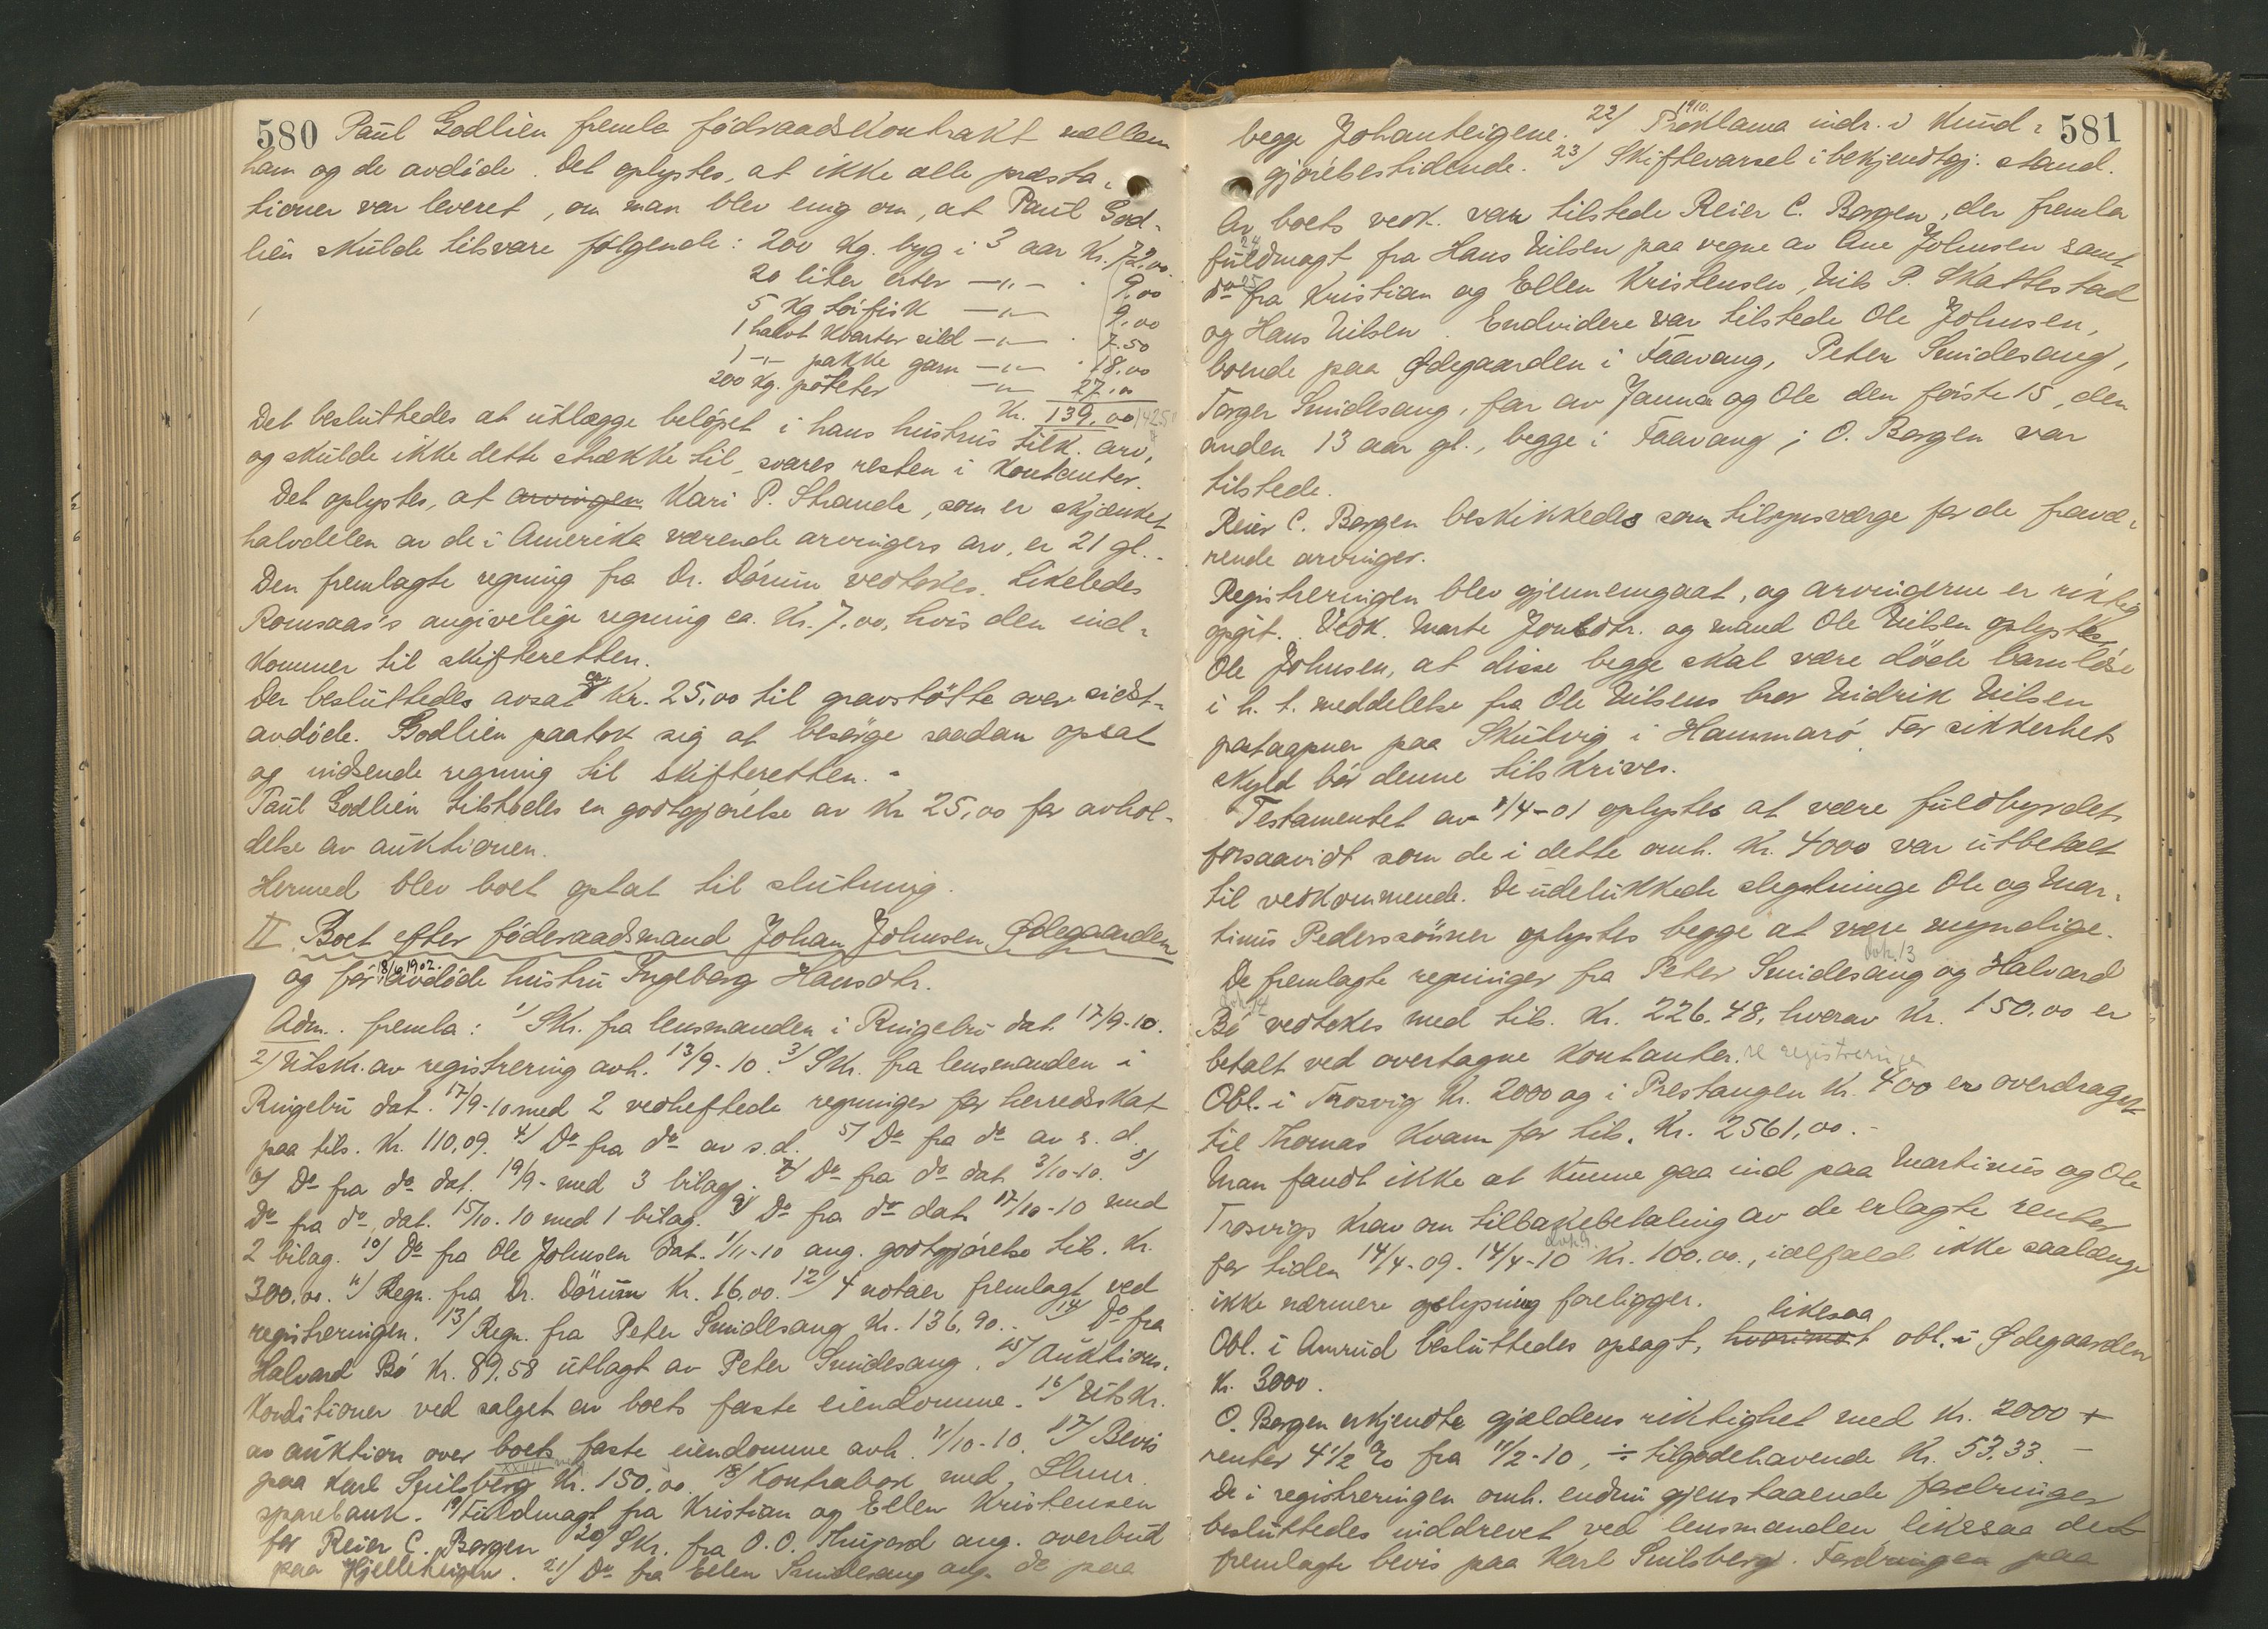 580 Paul Godlien fremla födraadskontrakt mellem
ham og de avdöde. Det oplystes, at ikke alle præsta-
tioner var leveret, om man blev enig om, at Paul God-
lien skulde tilsvare følgende: 200 kg. byg i 3 aar Kr. 72.00
20 liter erter —„— 9,00
5 kg törfisk —„— 9.00
1 halvt kvarter sild —„— 7.50
1 —„— pakke garn —„— 18.00
200 kg. poteter —„— 27.00
Kr. 139,00
Det besluttedes at utlægge belöpet i hans hustrus tilk. arv,
og skulde ikke dette strække til, svares resten i kontanter.
Det oplystes, at arvingen Kari P. Strande, som er skjænket
halvdelen av de i Amerika værende arvingers arv, er 21 gl.
Den fremlagte regning fra Dr. Dörum vedtokes. Likeledes
Romsaas's angivelige regning ca. Kr. 7,00, hvis den ind-
kommer til skifteretten.
Der besluttedes avsat ca Kr. 25,00 til gravstötte over sidst-
avdöde. Godlien paatok sig at besörge saadan opsat
og indsende regning til skifteretten. -
Paul Godlien tilstodes en godtgjörelse av Kr 25,00 for avhol-
delse av auktionen.
Hermed blev boet optat til slutning.
II Boet efter föderaadsmand Johan Johnsen Ødegaarden
og før 18/6 1902 avdöde hustru Ingeborg Hansdtr.
Adm. fremla: 1/ Skr. fra lensmanden i Ringebu dat. 17/9-10.
2/ Utskr. av registrering avh. 13/9-10. 3/ Skr. fra lensmanden i
Ringebu dat. 17/9-10 med 2 vedheftede regninger for herredsskat
paa tils. Kr. 110,09. 4/ Do fra do av s.d. 5/ Do fra do av s.d.
6/ Do fra do dat. 19/9- med 3 bilag. 7/ Do fra do dat 3/10-10. 8/
Do fra do, dat. 15/10.10 med 1 bilag. 9/ Do fra do dat 17/10-10 med
2 bilag. 10/ Do fra Ole Johnsen dat. 1/11-10 ang. godtgjörelse tils. Kr.
300,00. 11/ Regn. fra Dr. Dörum Kr. 16,00. 12/ 4 notaer fremlagt ved
registreringen. 13/ Regn. fra Peter Smidesang Kr. 136,90. 14/ Do fra
Halvard Bö Kr. 89,58 utlagt av Peter Smidesang. 15/ Auktions-
konditioner ved salget av boets faste eiendomme. 16/ Utskr.
av auktion over boets faste eiendomme avh. 11/10-10. 17/ Bevis
paa Karl Snilsberg Kr. 150,00. 18/ Kontrabok med
sparebank. 19/ Fuldmagt fra Kristian og Ellen Kristensen
for Reier C. Borgen 20/ Skr. fra O.O. ang. overbud
paa Hjelleteigen. 21/ Do fra Eilen Smidesang ang. do paa
581
begge Johanteigene. 22/ 1910. Proklama indr. i Kund-
gjörelsestidende. 23/ Skiftevarsel i bekjendtgj. stand.
Av boets vedk. var tilstede Reier C. Borgen, der fremla
24 fuldmagt fra Hans Nilsen paa vegne av Ane Johnsen samt
do 25 fra Kristian og Ellen Kristensen, Nils P. Skattestad
og Hans Nilsen. Endvidere var tilstede Ole Johnsen,
boende paa Ødegaarden i Faavang, Peter Smidesang,
Torger Smidesang, far av Janna og Ole den förste 15, den
anden 13 aar gl., begge i Faavang; O. Borgen var
tilstede.
Reier C. Borgen beskikkedes som tilsynsværge for de fravæ-
rende arvinger.
Registreringen blev gjennemgaat, og arvingerne er riktig
opgit. Vedk. Marte Jonsdtr. og mand Ole Nilsen oplystes
Ole Johnsen, at disse begge skal være döde barnlöse
i h. t. meddelelse fra Ole Nilsens bror Nidrik Nilsen
paa Skutvig i Hammarö. For sikkerhets
skyld bör denne tilskrives.
Testamentet av 1/4-01 oplystes at være fuldbyrdet
forsaavidt som de i dette omh. Kr. 4000 var utbetalt
til vedkommende. De udelukkede slegtninge Ole og Mar-
tinus Pederssönner oplystes begge at være myndige.
De fremlagte regninger fra Peter Smidesang dok. 13 og Halvard
Bö vedtokes med tils. Kr. 226.48, hvorav Kr. 150,00 er
betalt ved overtagne kontanter. registreringen
Obl. i Trosvig Kr. 2000 og i Prestangen Kr. 400 er overdraget
til Thomas Kvam for tils. Kr. 2561,00. -
Man fandt ikke at kunne gaa ind paa Martinus og Ole
Trosvigs krav om tilbakebetaling av de erlagte renter
for tiden 14/4-09 - 14/4-10 Kr. 100.00., ialfald ikke saalænge
ikke nærmere oplysning foreligger.
likesaa
Obl. i Amrud besluttedes opsagt, hvorimot obl. i Ødegaarden
Kr. 3000.
O. Borgen erkjendte gjældens riktighet med Kr. 2000 +
renter 4 1/2 % fra 11/2-10, ÷ tilgodehavende Kr. 53,33. -
De i registreringen omh. endnu gjenstaaende fordringer
besluttedes inddrevet ved lensmanden likesaa det
fremlagte bevis paa Karl Snilsberg. Fordringen paa